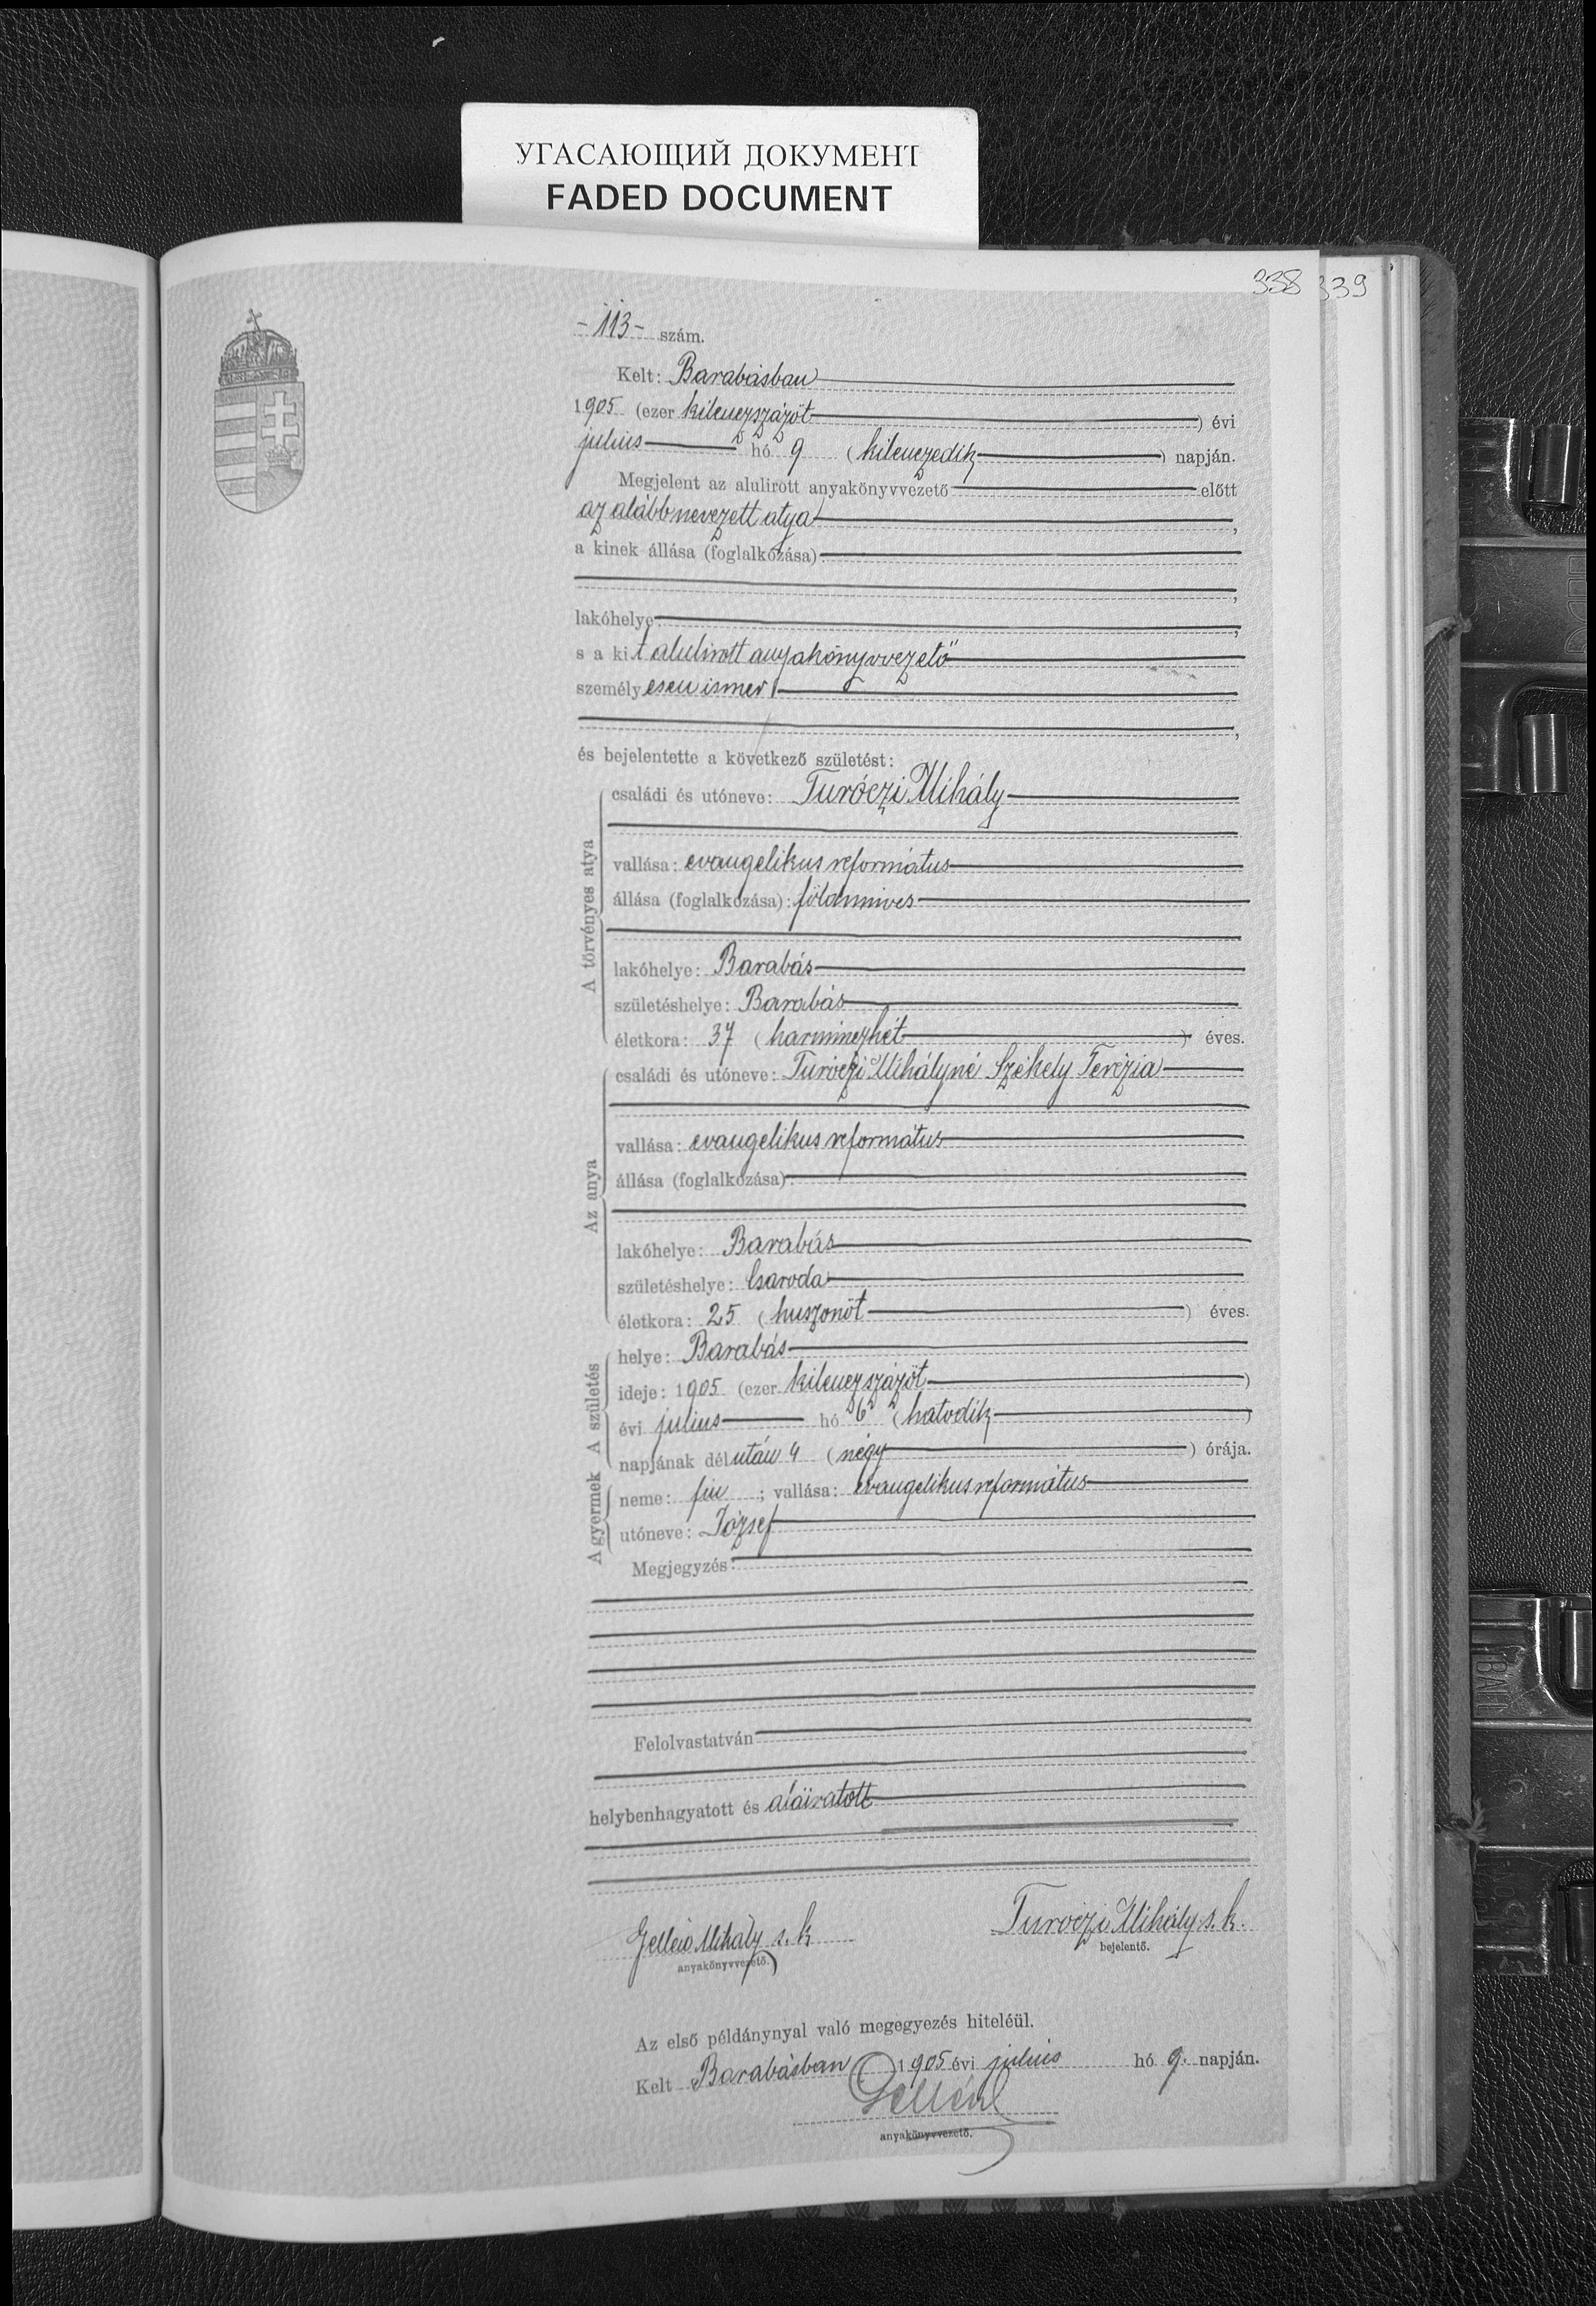 УГАСАЮЩИЙ ДОКУМЕНТ
FADED DOCUMENT
338 339
-113- szám.
Kelt: Barabásban
1905 (ezer kilenczszázöt) évi
julius hó 9 (kilenczedik) napján.
Megjelent az alulirott anyakönyvvezető előtt
az alább nevezett atya,
a kinek állása (foglalkozása)
,
lakóhelye: ,
s a kit alulirott anyakönyvvezető
személyesen ismer
,
és bejelentette a következő születést:
A törvényes atya
családi és utóneve: Turóczi Mihály
vallása: evangelikus református
állása (foglalkozása): földmives
lakóhelye: Barabás
születéshelye: Barabás
életkora: 37 (harminczhét) éves.
Az anya
családi és utóneve: Turóczi Mihályné Székely Terézia
vallása: evangelikus református
állása (foglalkozása):
lakóhelye: Barabás
születéshelye: Csaroda
életkora: 25 (huszonöt) éves.
A születés
helye: Barabás
ideje: 1905 (ezer kilenczszázöt)
évi julius hó 6 (hatodik)
napjának délután 4 (négy) órája.
A gyermek
neme: fiu; vallása: evangelikus református
utóneve: József
Megjegyzés:
Felolvastatván
helybenhagyatott és aláiratott
Mihály s. k
anyakönyvvezető.
Turóczi Mihály s. k.
bejelentő.
Az első példánynyal való megegyezés hiteléül.
Kelt Barabásban 1905 évi julius hó 9. napján.
anyakönyvvezető.